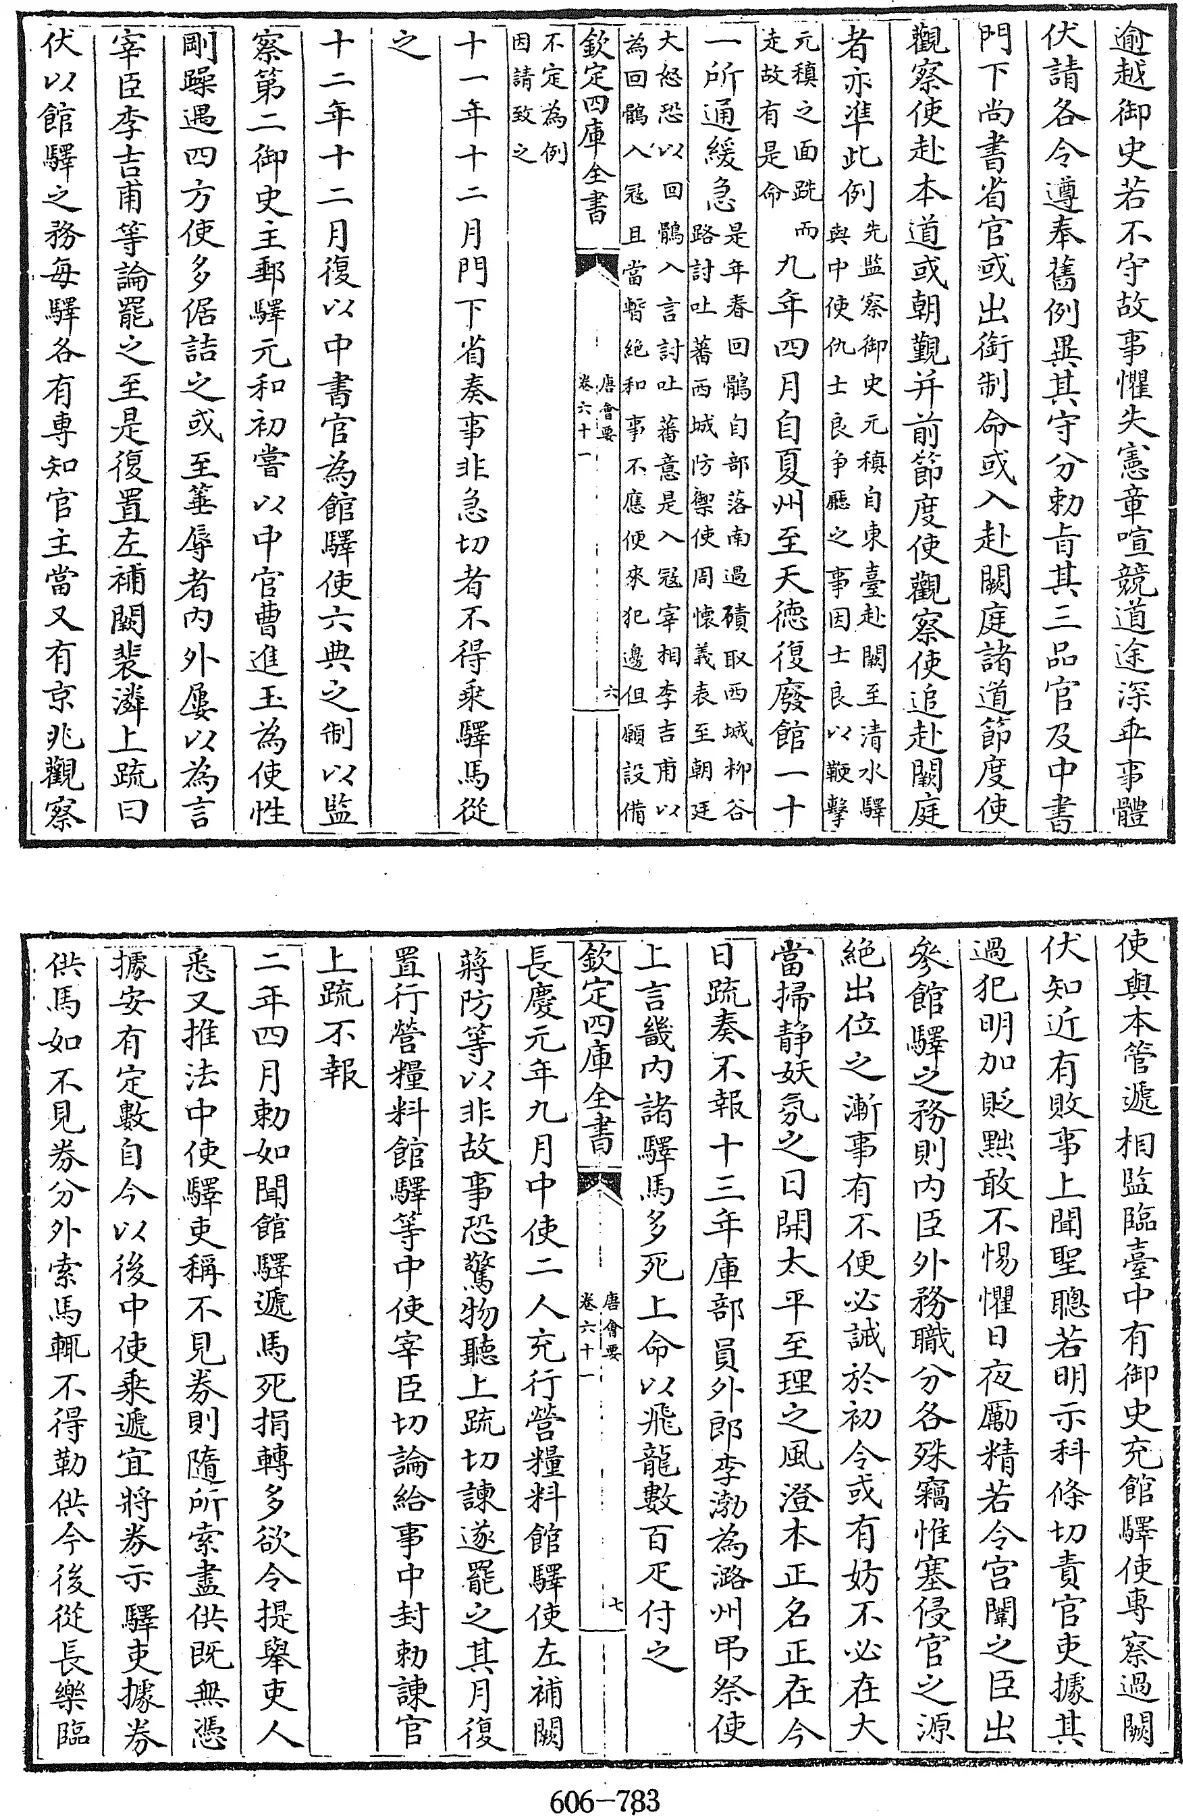 逾越御史若不守故事懼失憲章喧競道途深乖事體
伏請各令遵奉舊例異其守分勅旨其三品官及中書
門下尚書省官或出銜制命或入赴闕庭諸道節度使
觀察使赴本道或朝覲并前節度使觀察使追赴闕庭
者亦準此例先監察御史元稹自東臺赴闕至清水驛
與中使仇士良爭廳之事因士良以鞭擊
元稹之面跣而
走故有是命
九年四月自夏州至天德復廢館一十
一所通緩急是年春回鶻自部落南過磧取西城柳谷
路討吐蕃西城防禦使周懷義表至朝廷
大恐以回鶻入言討吐蕃意是入冦宰相李吉甫以
為回鶻入冦且當暫絶和事不應便來犯邊但願設備
欽定四庫全書
唐會要
卷六十一
六
不定為例
因請致之
十一年十二月門下省奏事非急切者不得乘驛馬從
之
十二年十二月復以中書官為館驛使六典之制以監
察第二御史主郵驛元和初嘗以中官曹進玉為使性
剛躁遇四方使多倨詰之或至箠辱者内外屢以為言
宰臣李吉甫等論罷之至是復置左補闕裴潾上疏曰
伏以館驛之務每驛各有專知官主當又有京兆觀察
使與本管遞相監臨臺中有御史充館驛使專察過闕
伏知近有敗事上聞聖聰若明示科條切責官吏據其
過犯明加貶黜敢不惕懼日夜厲精若令宫闈之臣出
參館驛之務則内臣外務職分各殊竊惟塞侵官之源
絶出位之漸事有不便必誡於初令或有妨不必在大
當掃静妖氛之日開太平至理之風澄本正名正在今
日疏奏不報十三年庫部員外郎李渤為潞州弔祭使
上言畿内諸驛馬多死上命以飛龍數百疋付之
欽定四庫全書
唐會要
卷六十一
七
長慶元年九月中使二人充行營糧料館驛使左補闕
蔣防等以非故事恐驚物聽上疏切諫遂罷之其月復
置行營糧料館驛等中使宰臣切論給事中封勅諫官
上疏不報
二年四月勅如聞館驛遞馬死損轉多欲令提舉吏人
悉又推法中使驛吏稱不見券則隨所索盡供既無憑
據安有定數自今以後中使乘遞宜將券示驛吏據券
供馬如不見券分外索馬輒不得勒供今後從長樂臨
606-783